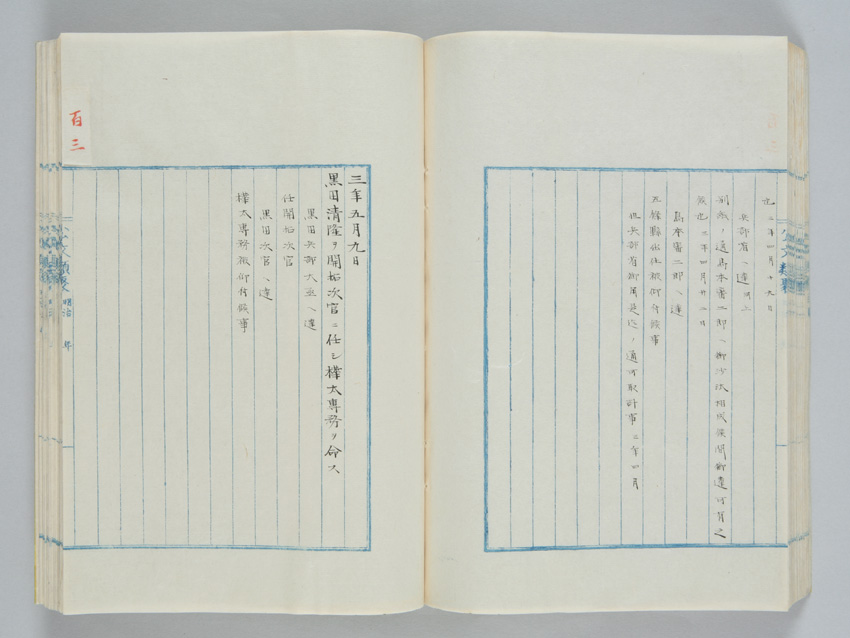 也 三年四月十九日
兵部省ヘ達 同上
別紙ノ通島本審二郎ヘ御沙汰相成候間御達可有之
候也 三年四月廿二日
島本審二郎ヘ達
五條縣出仕被仰付候事
但兵部省御用是迄ノ通可取計事 三年四月
三年五月九日
黒田清隆ヲ開拓次官ニ任シ樺太専務ヲ命ス
黒田兵部大丞ヘ達
任開拓次官
黒田次官ヘ達
樺太専務被仰付候事
百三
明治 年